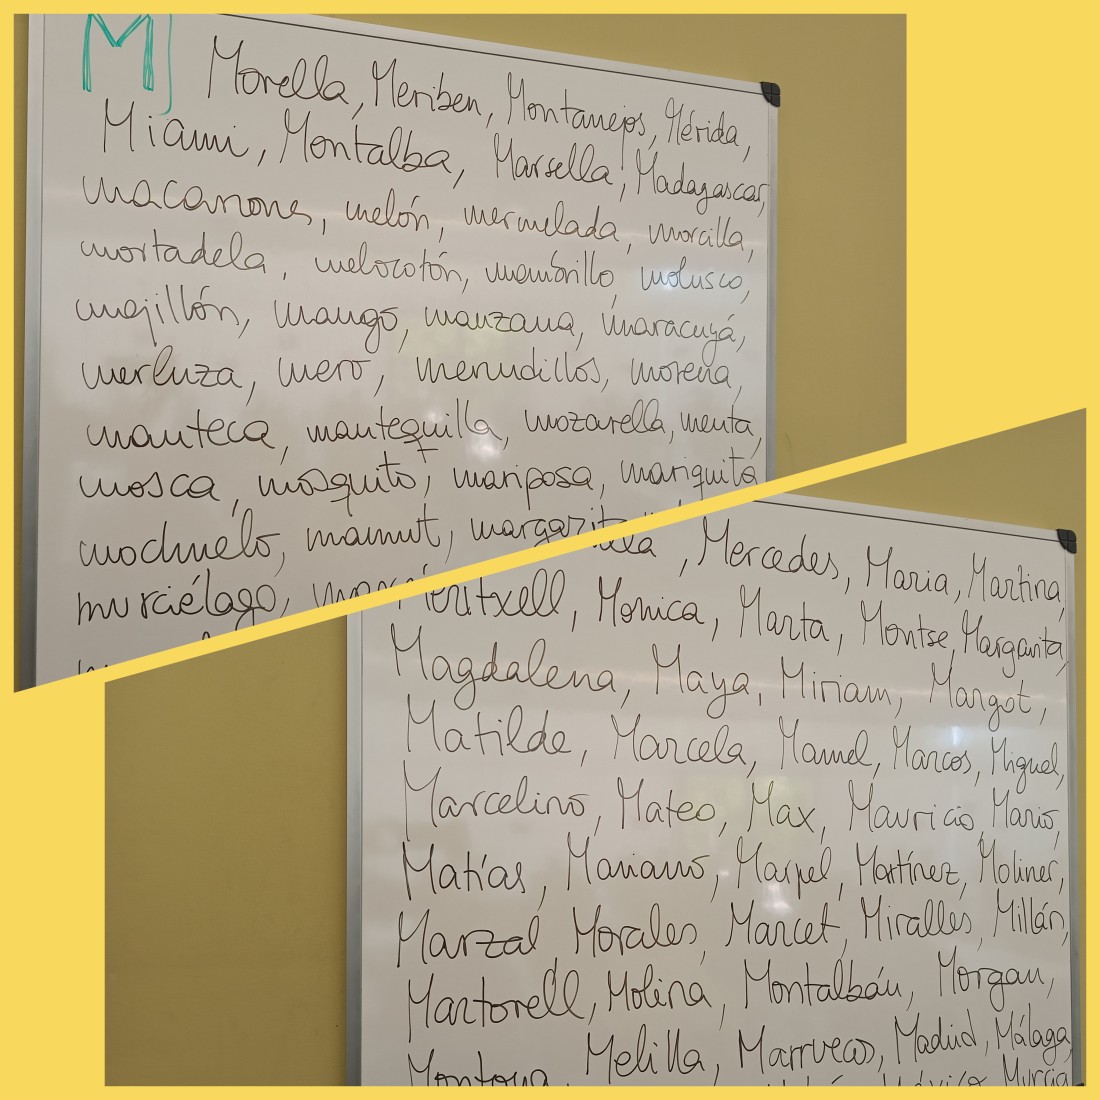 M
Morella, Meriben, Montanejos, Mérida,
Miami, Montalba, Marsella, Madagascar,
macarrones, melón, mermelada, morcilla,
mortadela, melocotón, membrillo, molusco,
mejillón, mango, manzana, maracuyá,
merluza, mero, menudillos, morena,
manteca, mantequilla, mozarella, menta,
mosca, mosquito, mariposa, mariquita
mochuelo, mamut,
murciélago,
, Mercedes, Maria, Martina,
Monica, Marta, Montse, Margarita,
Magdalena, Maya, Miriam, Margot,
Matilde, Marcela, Manuel, Marcos, Miguel,
Marcelino, Mateo, Max, Mauricio, Mario,
Matías, Mariano, Maspel, Martínez, Moliner,
Marzal, Morales, Marcet, Miralles, Millán,
Martorell, Molina, Montalbán, Morgan,
Montoya, Melilla, Marruecos, Madrid, Málaga,
México, Murcia